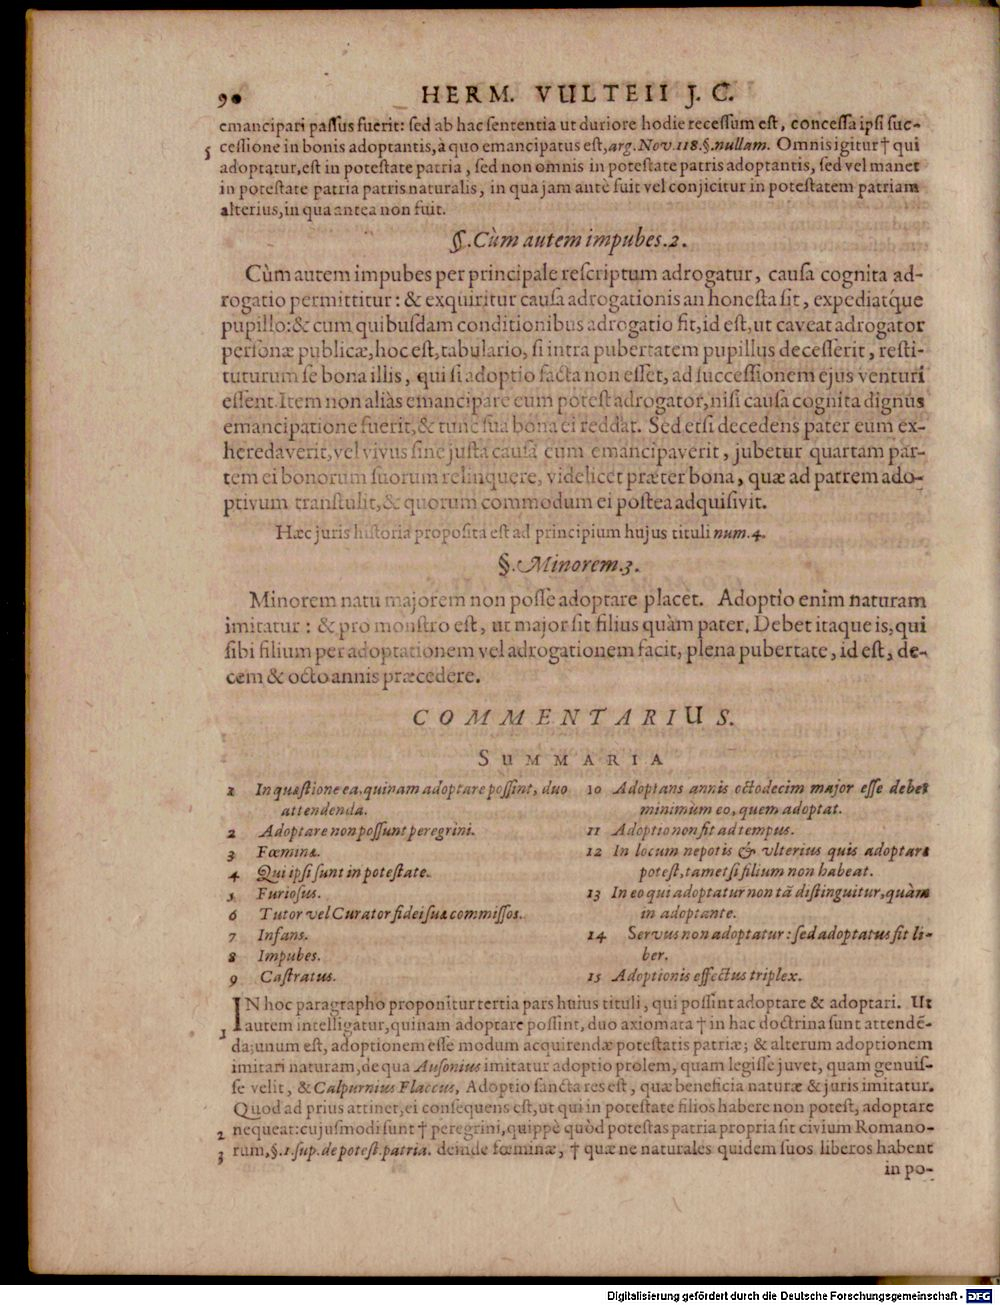 90 HERM. VULTEII J. C.
emancipari paſſus fuerit: ſed ab hac ſententia ut duriore hodie receſſum eſt, conceſſa ipſi ſuc-
5 ceſſione in bonis adoptantis, à quo emancipatus eſt, arg. Nov. 118. §. nullam. Omnis igitur † qui
adoptatur, eſt in poteſtate patria, ſed non omnis in poteſtate patris adoptantis, ſed vel manet
in poteſtate patria patris naturalis, in qua jam antè fuit vel conjicitur in poteſtatem patriam
alterius, in qua antea non fuit.
§. Cùm autem impubes. 2.
Cùm autem impubes per principale reſcriptum adrogatur, cauſa cognita ad-
rogatio permittitur: & exquiritur cauſa adrogationis an honeſta ſit, expediatq́ue
pupillo: & cum quibuſdam conditionibus adrogatio fit, id eſt, ut caveat adrogator
perſonæ publicæ, hoc eſt, tabulario, ſi intra pubertatem pupillus deceſſerit, reſti-
tuturum ſe bona illis, qui ſi adoptio facta non eſſet, ad ſucceſſionem ejus venturi
eſſent. Item non aliàs emancipare eum poteſt adrogator, niſi cauſa cognita dignus
emancipatione fuerit, & tunc ſua bona ei reddat. Sed etſi decedens pater eum ex-
heredaverit, vel vivus ſine juſta cauſa eum emancipaverit, jubetur quartam par-
tem ei bonorum ſuorum relinquere, videlicet præter bona, quæ ad patrem ado-
ptivum tranſtulit, & quorum commodum ei poſtea adquiſivit.
Hæc juris hiſtoria propoſita eſt ad principium hujus tituli num. 4.
§. Minorem. 3.
Minorem natu majorem non poſſe adoptare placet. Adoptio enim naturam
imitatur: & pro monſtro eſt, ut major ſit filius quàm pater. Debet itaque is, qui
ſibi filium per adoptationem vel adrogationem facit, plena pubertate, id eſt, de-
cem & octo annis præcedere.
COMMENTARIUS.
SUMMARIA
1 In quæſtione ea, quinam adoptare poſſint, duo
attendenda.
2 Adoptare non poſſunt peregrini.
3 Fœminæ.
4 Qui ipſi ſunt in poteſtate.
5 Furioſus.
6 Tutor vel Curator fidei ſuæ commiſſos.
7 Infans.
8 Impubes.
9 Caſtratus.
10 Adoptans annis octodecim major eſſe debet
minimum eo, quem adoptat.
11 Adoptio non fit ad tempus.
12 In locum nepotis & ulterius quis adoptare
poteſt, tametſi filium non habeat.
13 In eo qui adoptatur non tã diſtinguitur, quàm
in adoptante.
14 Servus non adoptatur: ſed adoptatus fit li-
ber.
15 Adoptionis effectus triplex.
IN hoc paragrapho proponitur tertia pars huius tituli, qui poſſint adoptare & adoptari. Ut
1 autem intelligatur, quinam adoptare poſſint, duo axiomata † in hac doctrina ſunt attendẽ-
da; unum eſt, adoptionem eſſe modum acquirendæ poteſtatis patriæ; & alterum adoptionem
imitari naturam, de qua Auſonius imitatur adoptio prolem, quam legiſſe juvet, quam genuiſ-
ſe velit, & Calpurnius Flaccus, Adoptio ſancta res eſt, quæ beneficia naturæ & juris imitatur.
Quod ad prius attinet, ei conſequens eſt, ut qui in poteſtate filios habere non poteſt, adoptare
2 nequeat: cujuſmodi ſunt † peregrini, quippè quòd poteſtas patria propria ſit civium Romano-
3 rum, §. 1. ſup. de poteſt. patria. deinde fœminæ, † quæ ne naturales quidem ſuos liberos habent
in po-
Digitalisierung gefördert durch die Deutsche Forschungsgemeinschaft - DFG